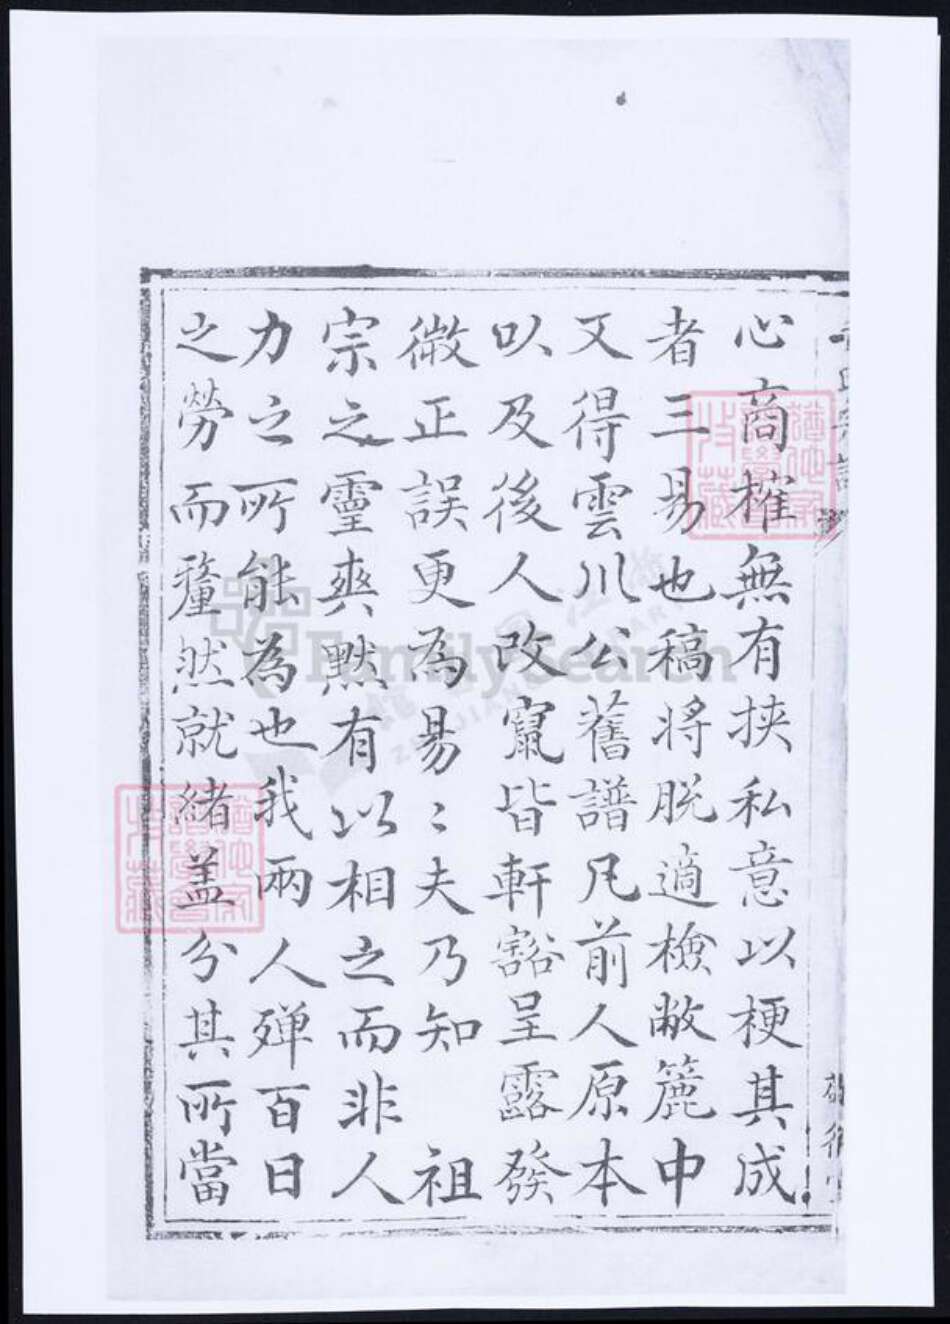 心商榷無有挾私意以梗其成
者三易也稿將脫適檢敝簏中
又得雲川公舊譜凡前人原本
以及後人改竄皆軒豁呈露發
微正誤更為易〻夫乃知 祖
宗之靈爽默有以相之而非人
力之所能為也我兩人殫百日
之勞而釐然就緒蓋分其所當
FamilySearch